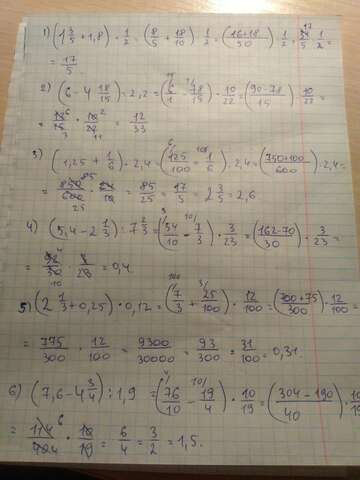 1) (1 3/5 + 1,8) · 1/2 = (8/5 + 18/10) · 1/2 = (16+18)/50 · 1/2 = 34/5 · 1/2 =
= 17/5
2) (6 - 4 18/15) : 2,2 = (6/1 - 78/15) · 10/22 = (90-78)/15 · 10/22 =
= 12/15 · 10/22 = 12/33
3) (1,25 + 1/6) · 2,4 = (125/100 + 1/6) · 2,4 = (750+100)/600 · 2,4 =
= 850/600 · 24/10 = 85/25 = 17/5 = 2 3/5 = 2,6
4) (5,4 - 2 1/3) : 7 2/3 = (54/10 - 7/3) · 3/23 = (162-70)/30 · 3/23 =
= 92/30 · 3/23 = 0,4.
5) (2 1/3 + 0,25) · 0,12 = (7/3 + 25/100) · 12/100 = (700+75)/300 · 12/100 =
= 775/300 · 12/100 = 9300/30000 = 93/300 = 31/100 = 0,31.
6) (7,6 - 4 3/4) : 1,9 = (76/10 - 19/4) · 10/19 = (304-190)/40 · 10/19
= 114/4 · 10/19 = 6/4 = 3/2 = 1,5.